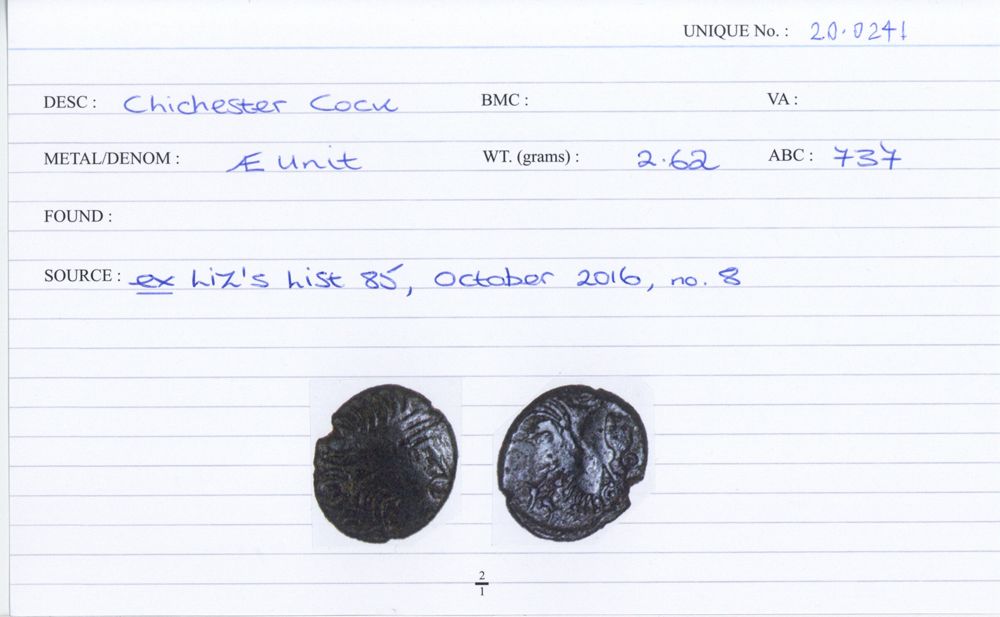 UNIQUE No. : 20.0241
DESC : Chichester Cock BMC : VA :
METAL/DENOM : Æ Unit WT. (grams) : 2.62 ABC : 737
FOUND :
SOURCE : ex Liz's List 85, October 2016, no. 8
2
1